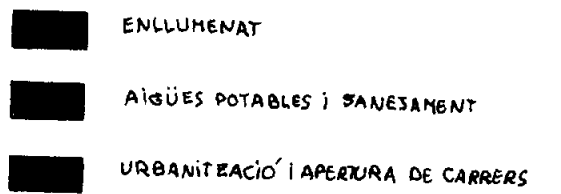 ENLLUMENAT
AIGÜES POTABLES i SANEJAMENT
URBANITZACIÓ i APERTURA DE CARRERS